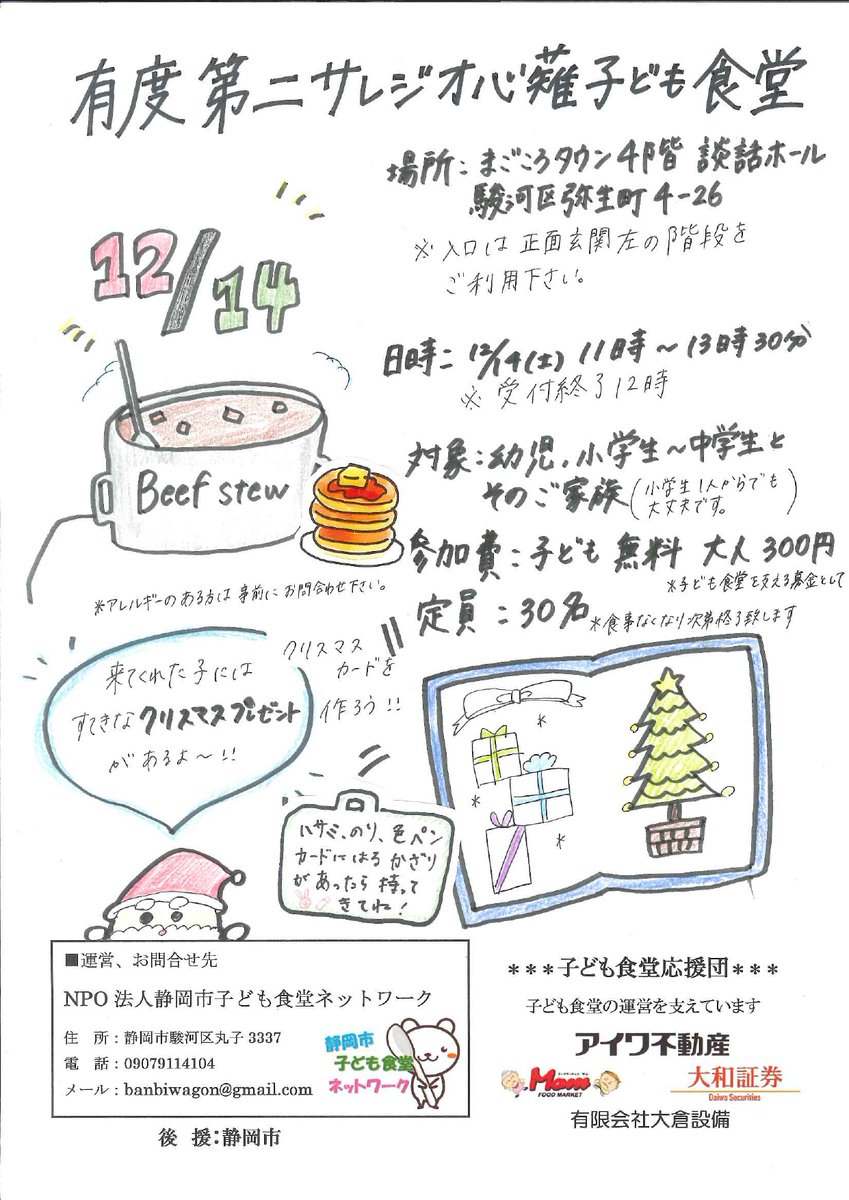 有度第二サレジオ心薙子ども食堂
場所：まごころタウン4階 談話ホール
駿河区弥生町4-26
※入口は正面玄関左の階段を
ご利用下さい。
12/14
日時：12/14(土) 11時～13時30分
※受付終了12時
Beef stew
対象：幼児、小学生～中学生と
そのご家族(小学生1人からでも
大丈夫です。)
参加費：子ども 無料 大人300円
※子ども食堂を支える募金として
※アレルギーのある方は事前にお問合わせ下さい。
定員：30名 ※食事なくなり次第終了致します
来てくれた子には
すてきなクリスマスプレゼント
があるよ～!!
クリスマス
カードを
作ろう!!
ハサミ、のり、色ペン
カードにはるかざり
があったら持って
きてね!
■運営、お問合せ先
NPO法人静岡市子ども食堂ネットワーク
住 所：静岡市駿河区丸子3337
電 話：09079114104
メール：banbiwagon@gmail.com
静岡市
子ども食堂
ネットワーク
後 援：静岡市
***子ども食堂応援団***
子ども食堂の運営を支えています
アイワ不動産
Mom
FOOD MARKET
大和証券
Daiwa Securities
有限会社大倉設備